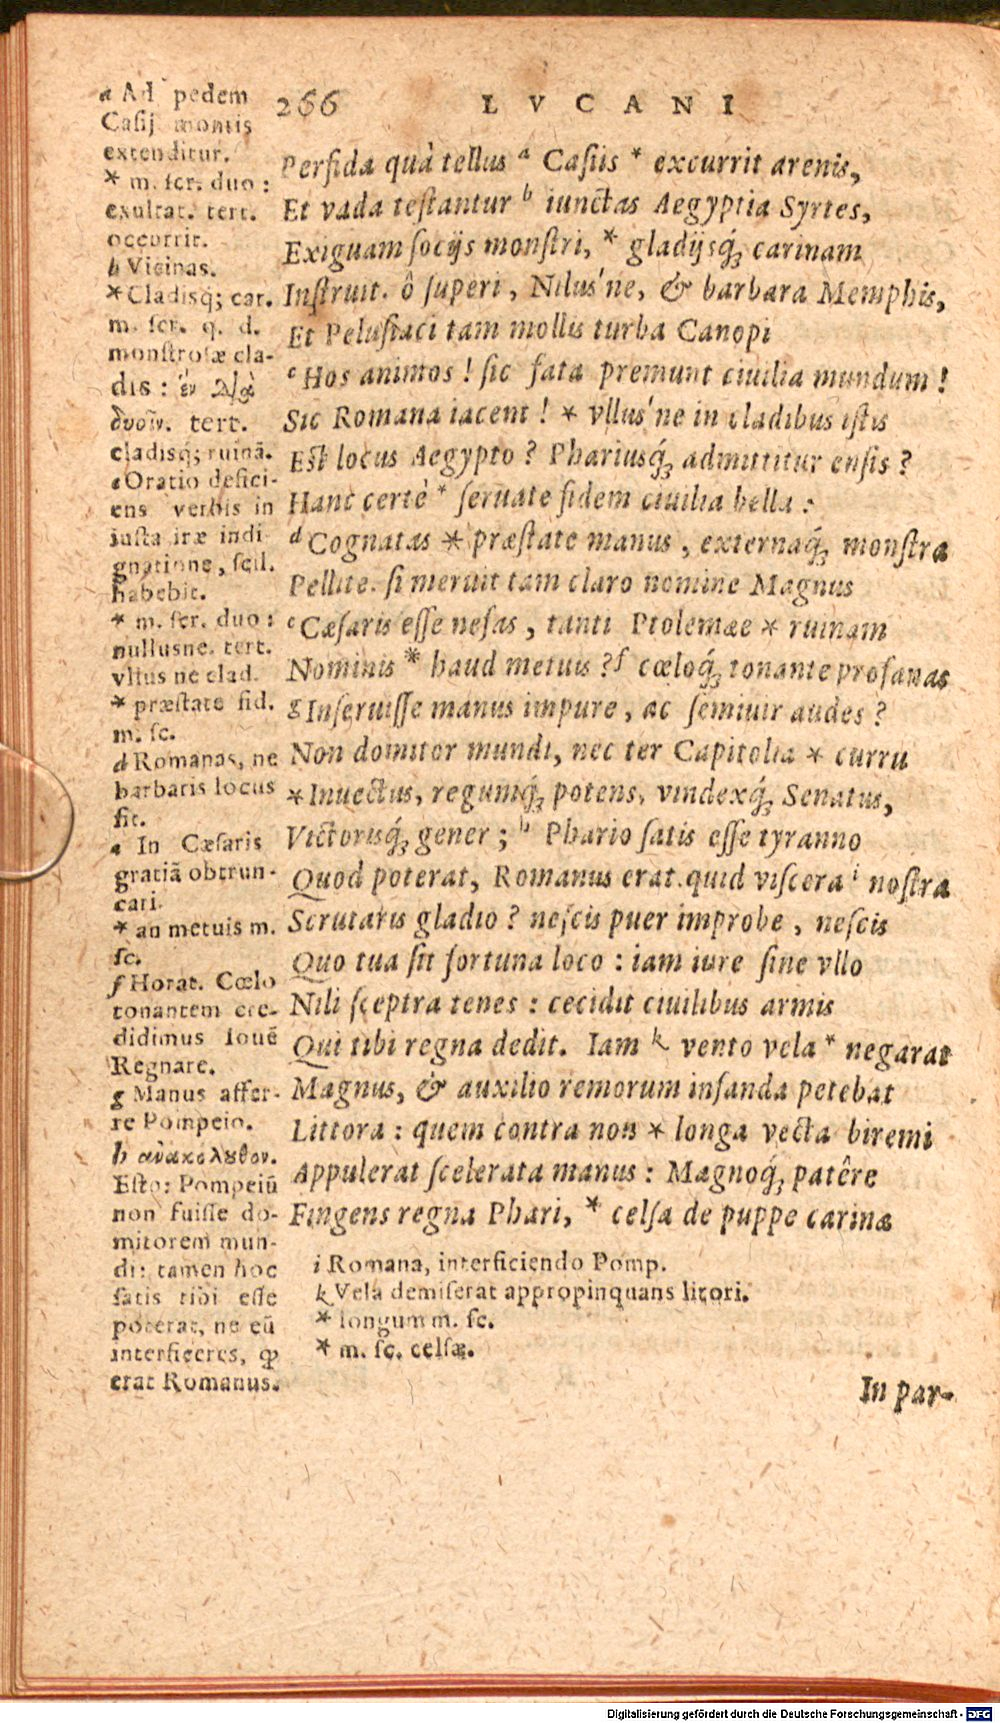 266 LVCANI
Perfida quà tellus a Casiis * excurrit arenis,
Et vada testantur b iunctas Aegyptia Syrtes,
Exiguam socijs monstri, * gladijsq́; carinam
Instruit. ô superi, Nilus'ne, & barbara Memphis,
Et Pelusiaci tam mollis turba Canopi
c Hos animos! sic fata premunt ciuilia mundum!
Sic Romana iacent! * vllus'ne in cladibus istis
Est locus Aegypto? Phariusq́; admittitur ensis?
Hanc certè * seruate fidem ciuilia bella:
d Cognatas * præstate manus, externaq́; monstra
Pellite. si meruit tam claro nomine Magnus
e Cæsaris esse nefas, tanti Ptolemæe * ruinam
Nominis * haud metuis? f cœloq́; tonante profanas
g Inseruisse manus impure, ac semiuir audes?
Non domitor mundi, nec ter Capitolia * curru
* Inuectus, regumq́; potens, vindexq́; Senatus,
Victorisq́; gener; h Phario satis esse tyranno
Quod poterat, Romanus erat. quid viscera i nostra
Scrutaris gladio? nescis puer improbe, nescis
Quo tua sit fortuna loco: iam iure sine vllo
Nili sceptra tenes: cecidit ciuilibus armis
Qui tibi regna dedit. Iam k vento vela * negarat
Magnus, & auxilio remorum infanda petebat
Littora: quem contra non * longa vecta biremi
Appulerat scelerata manus: Magnoq́; patêre
Fingens regna Phari, * celsa de puppe carinæ
a Ad pedem
Casij montis
extenditur.
* m. scr. duo:
exultat. tert.
occurrit.
b Vicinas.
* Cladisq́; car.
m. scr. q. d.
monstrosæ cla-
dis: ἓν διὰ
δυοῖν. tert.
cladisq́; ruinā.
c Oratio defici-
ens verbis in
iusta iræ indi-
gnatione, scil.
habebit.
* m. scr. duo:
nullusne. tert.
vllus ne clad.
* præstate fid.
m. sc.
d Romanas, ne
barbaris locus
sit.
e In Cæsaris
gratiā obtrun-
cari.
* an metuis m.
sc.
f Horat. Cœlo
tonantem cre-
didimus Iouē
Regnare.
g Manus affer-
re Pompeio.
h ἀνακόλουθον.
Esto: Pompeiū
non fuisse do-
mitorem mun-
di: tamen hoc
satis tibi esse
poterat, ne eū
interficeres, ꝙ
erat Romanus.
i Romana, interficiendo Pomp.
k Vela demiserat appropinquans litori.
* longum m. sc.
* m. sc. celsæ.
In par-
Digitalisierung gefördert durch die Deutsche Forschungsgemeinschaft - DFG